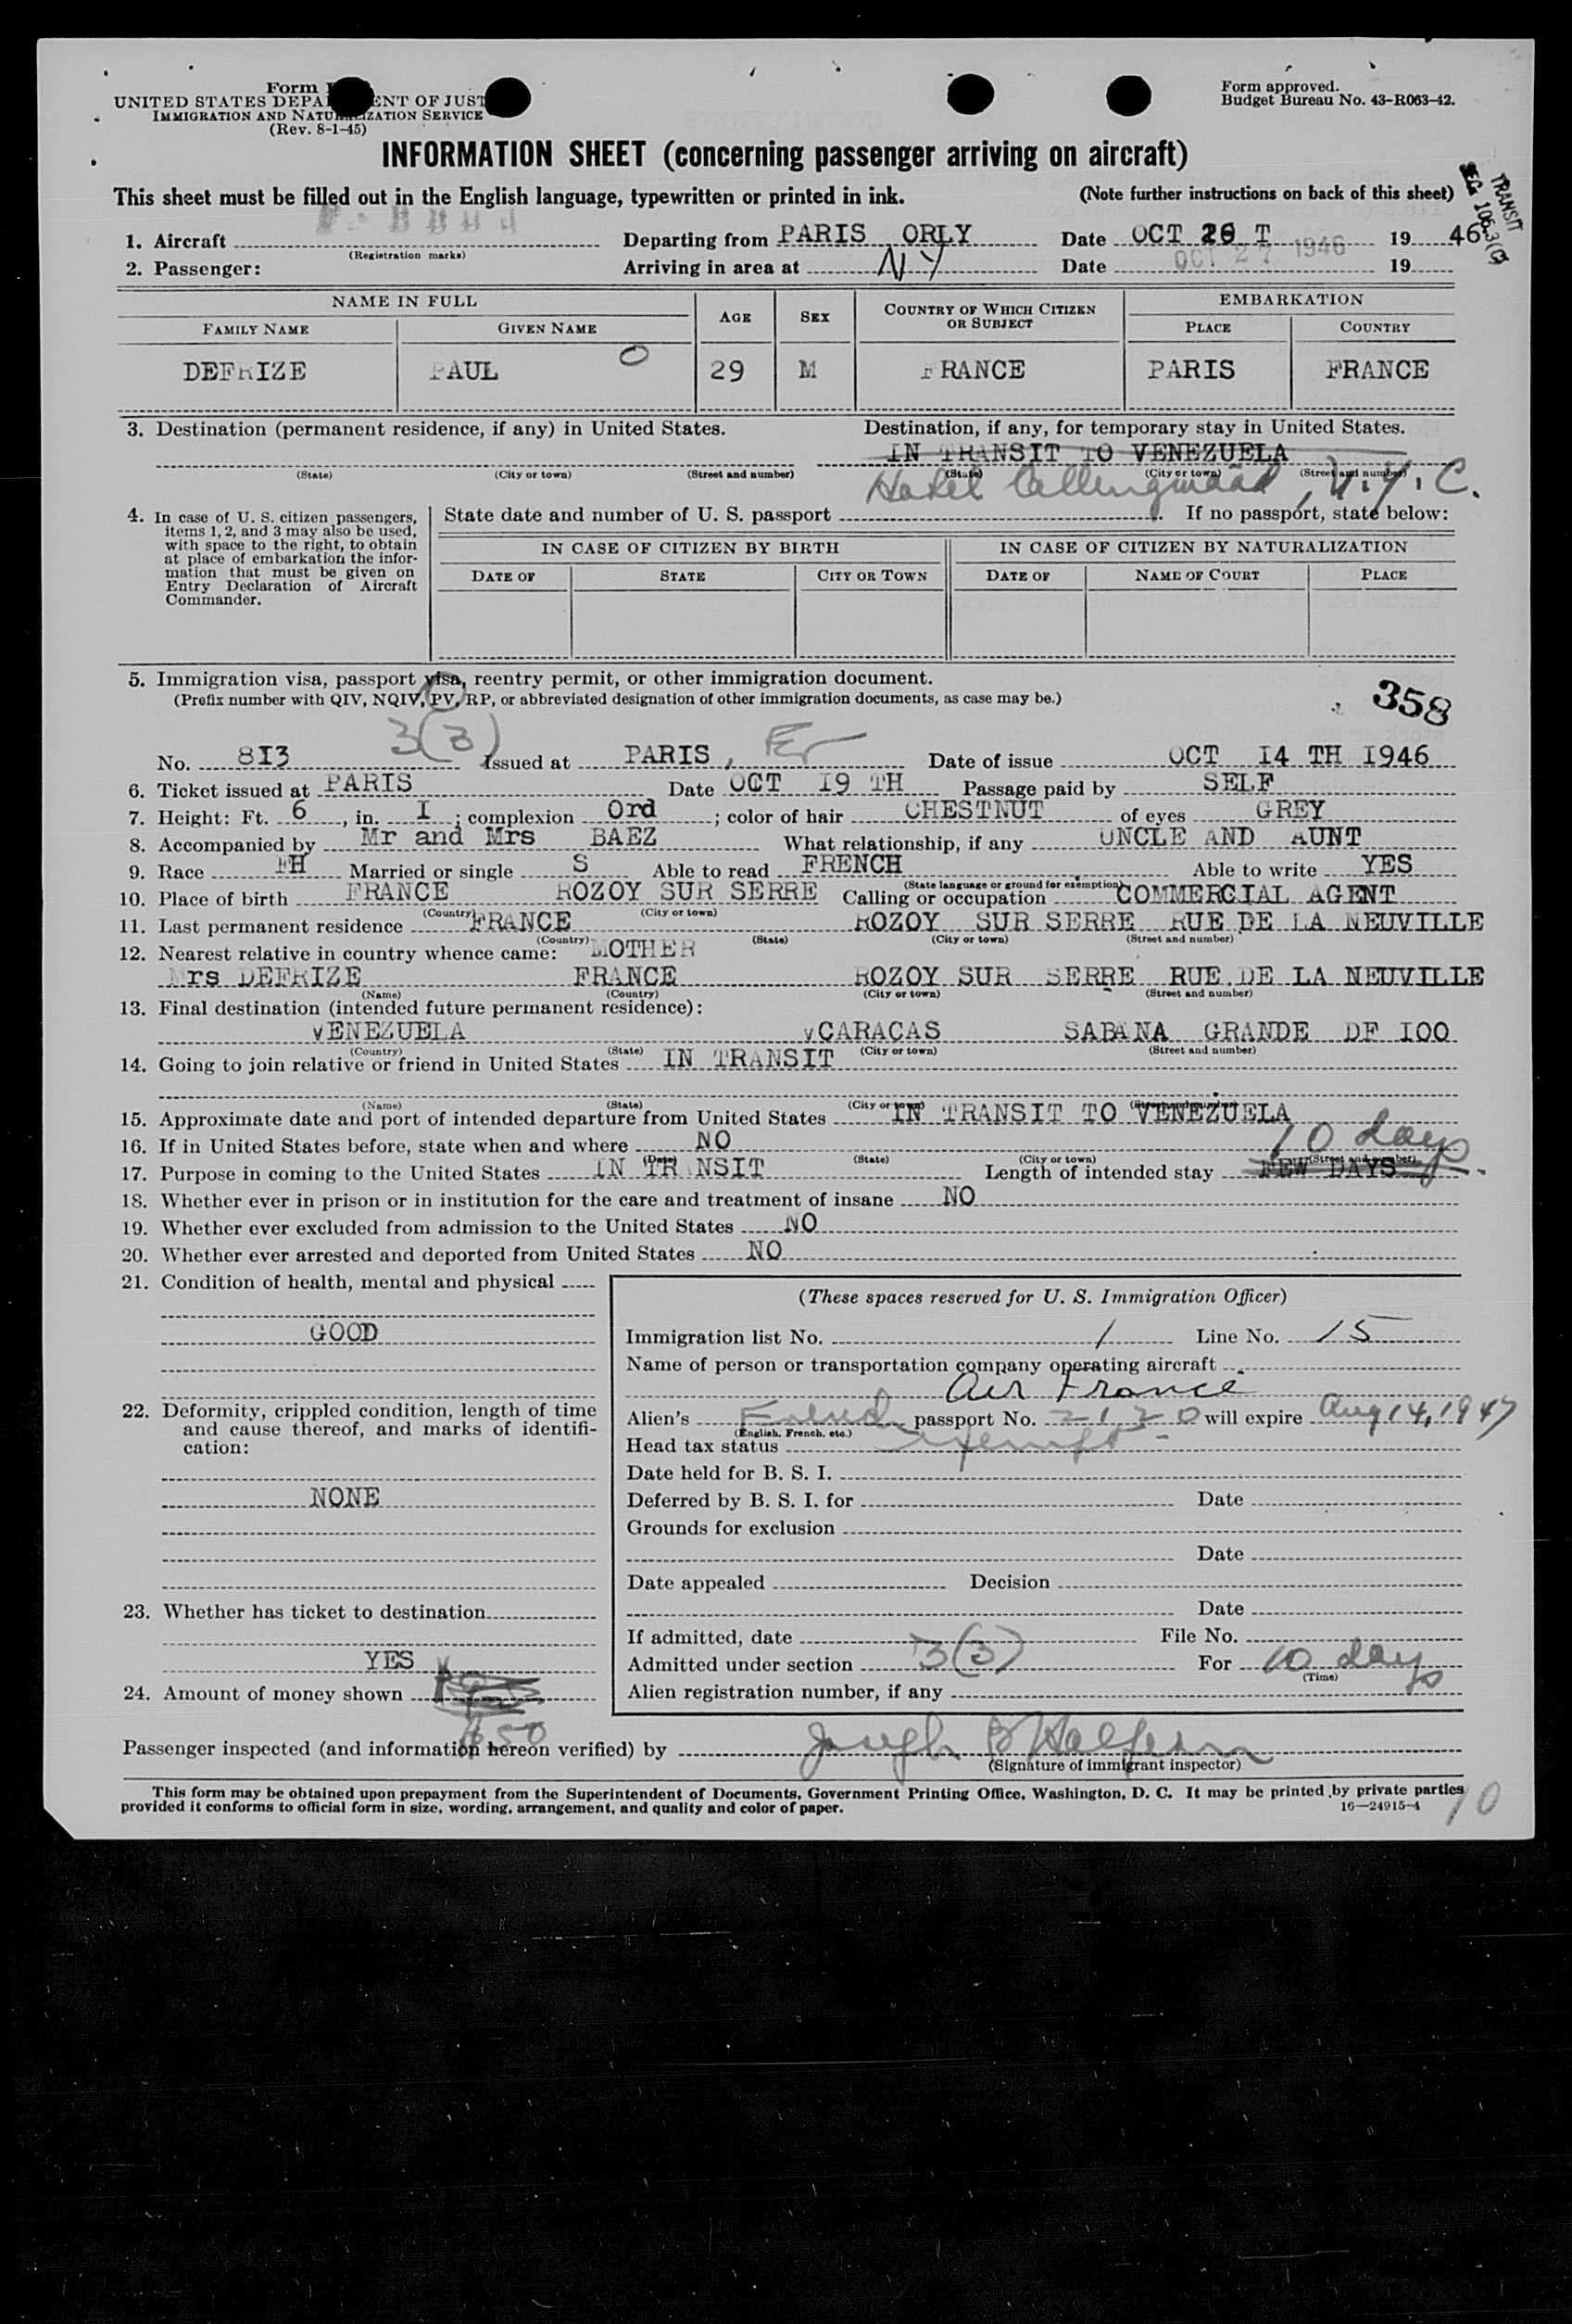 Form
Form approved.
UNITED STATES DEPA ENT OF JUST
Budget Bureau No. 43-R063-42.
IMMIGRATION AND NATURALIZATION SERVICE
(Rev. 8-1-45)
INFORMATION SHEET (concerning passenger arriving on aircraft)
This sheet must be filled out in the English language, typewritten or printed in ink. (Note further instructions on back of this sheet)
TRANSIT
1. Aircraft Departing from PARIS ORLY Date OCT 26 T 19 46
(Registration marks)
2. Passenger: Arriving in area at NY Date OCT 27 1946 19
NAME IN FULL AGE SEX COUNTRY OF WHICH CITIZEN OR SUBJECT EMBARKATION
FAMILY NAME GIVEN NAME PLACE COUNTRY
DEFRIZE PAUL O 29 M FRANCE PARIS FRANCE
3. Destination (permanent residence, if any) in United States. Destination, if any, for temporary stay in United States.
IN TRANSIT TO VENEZUELA
(State) (City or town) (Street and number) (State) (City or town) (Street and number)
Hotel Collingwood, N.Y.C.
4. In case of U. S. citizen passengers, items 1, 2, and 3 may also be used, with space to the right, to obtain at place of embarkation the information that must be given on Entry Declaration of Aircraft Commander.
State date and number of U. S. passport If no passport, state below:
IN CASE OF CITIZEN BY BIRTH IN CASE OF CITIZEN BY NATURALIZATION
DATE OF STATE CITY OR TOWN DATE OF NAME OF COURT PLACE
5. Immigration visa, passport visa, reentry permit, or other immigration document.
(Prefix number with QIV, NQIV, PV, RP, or abbreviated designation of other immigration documents, as case may be.)
358
3(3)
No. 8I3 Issued at PARIS, Fr Date of issue OCT I4 TH I946
6. Ticket issued at PARIS Date OCT I9 TH Passage paid by SELF
7. Height: Ft. 6, in. I; complexion Ord; color of hair CHESTNUT of eyes GREY
8. Accompanied by Mr and Mrs BAEZ What relationship, if any UNCLE AND AUNT
9. Race FH Married or single S Able to read FRENCH Able to write YES
(State language or ground for exemption)
10. Place of birth FRANCE ROZOY SUR SERRE Calling or occupation COMMERCIAL AGENT
(Country) (City or town)
11. Last permanent residence FRANCE ROZOY SUR SERRE RUE DE LA NEUVILLE
(Country) (State) (City or town) (Street and number)
12. Nearest relative in country whence came: MOTHER
Mrs DEFRIZE FRANCE ROZOY SUR SERRE RUE DE LA NEUVILLE
(Name) (Country) (City or town) (Street and number)
13. Final destination (intended future permanent residence):
vENEZUELA vCARACAS SABANA GRANDE DF I00
(Country) (State) (City or town) (Street and number)
14. Going to join relative or friend in United States IN TRANSIT
(Name) (State) (City or town) (Street and number)
15. Approximate date and port of intended departure from United States IN TRANSIT TO VENEZUELA
16. If in United States before, state when and where NO
(Date) (State) (City or town) (Street and number)
10 days
17. Purpose in coming to the United States IN TRANSIT Length of intended stay FEW DAYS
18. Whether ever in prison or in institution for the care and treatment of insane NO
19. Whether ever excluded from admission to the United States NO
20. Whether ever arrested and deported from United States NO
21. Condition of health, mental and physical
GOOD
22. Deformity, crippled condition, length of time and cause thereof, and marks of identification:
NONE
23. Whether has ticket to destination
YES
24. Amount of money shown
$50
(These spaces reserved for U. S. Immigration Officer)
Immigration list No. 1 Line No. 15
Name of person or transportation company operating aircraft
Air France
Alien's French passport No. 2120 will expire Aug 14, 1947
(English, French, etc.)
Head tax status exempt
Date held for B. S. I.
Deferred by B. S. I. for Date
Grounds for exclusion
Date
Date appealed Decision
Date
If admitted, date File No.
Admitted under section 3(3) For 10 days
(Time)
Alien registration number, if any
Passenger inspected (and information hereon verified) by Joseph B Halpern
(Signature of immigrant inspector)
This form may be obtained upon prepayment from the Superintendent of Documents, Government Printing Office, Washington, D. C. It may be printed by private parties
provided it conforms to official form in size, wording, arrangement, and quality and color of paper. 16—24915-4
10